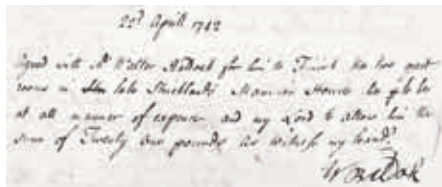 22d Aprill 1742
Agreed with Mr Walter Adock for him to Finish the two next
rooms in late Stricklands Mansion House he to be
at all manner of expence and my Lord to allow him the
sume of Twenty One pounds As witness my hand